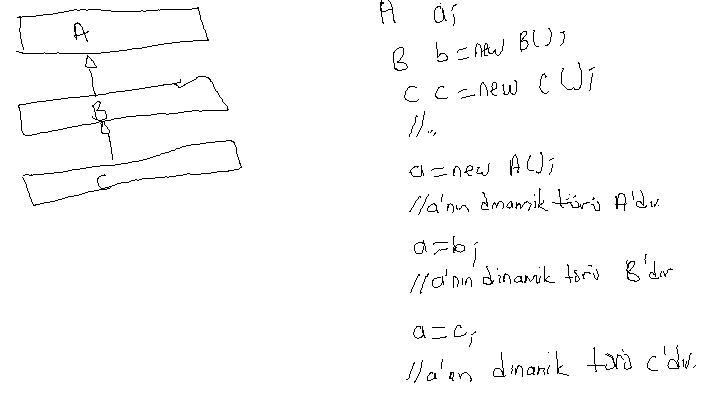 A
B
C
A a;
B b=new B();
C c=new C();
//..
a=new A();
//a'nın dinamik türü A'dır.
a=b;
//a'nın dinamik türü B'dır
a=c;
//a'nın dinamik türü C'dır.